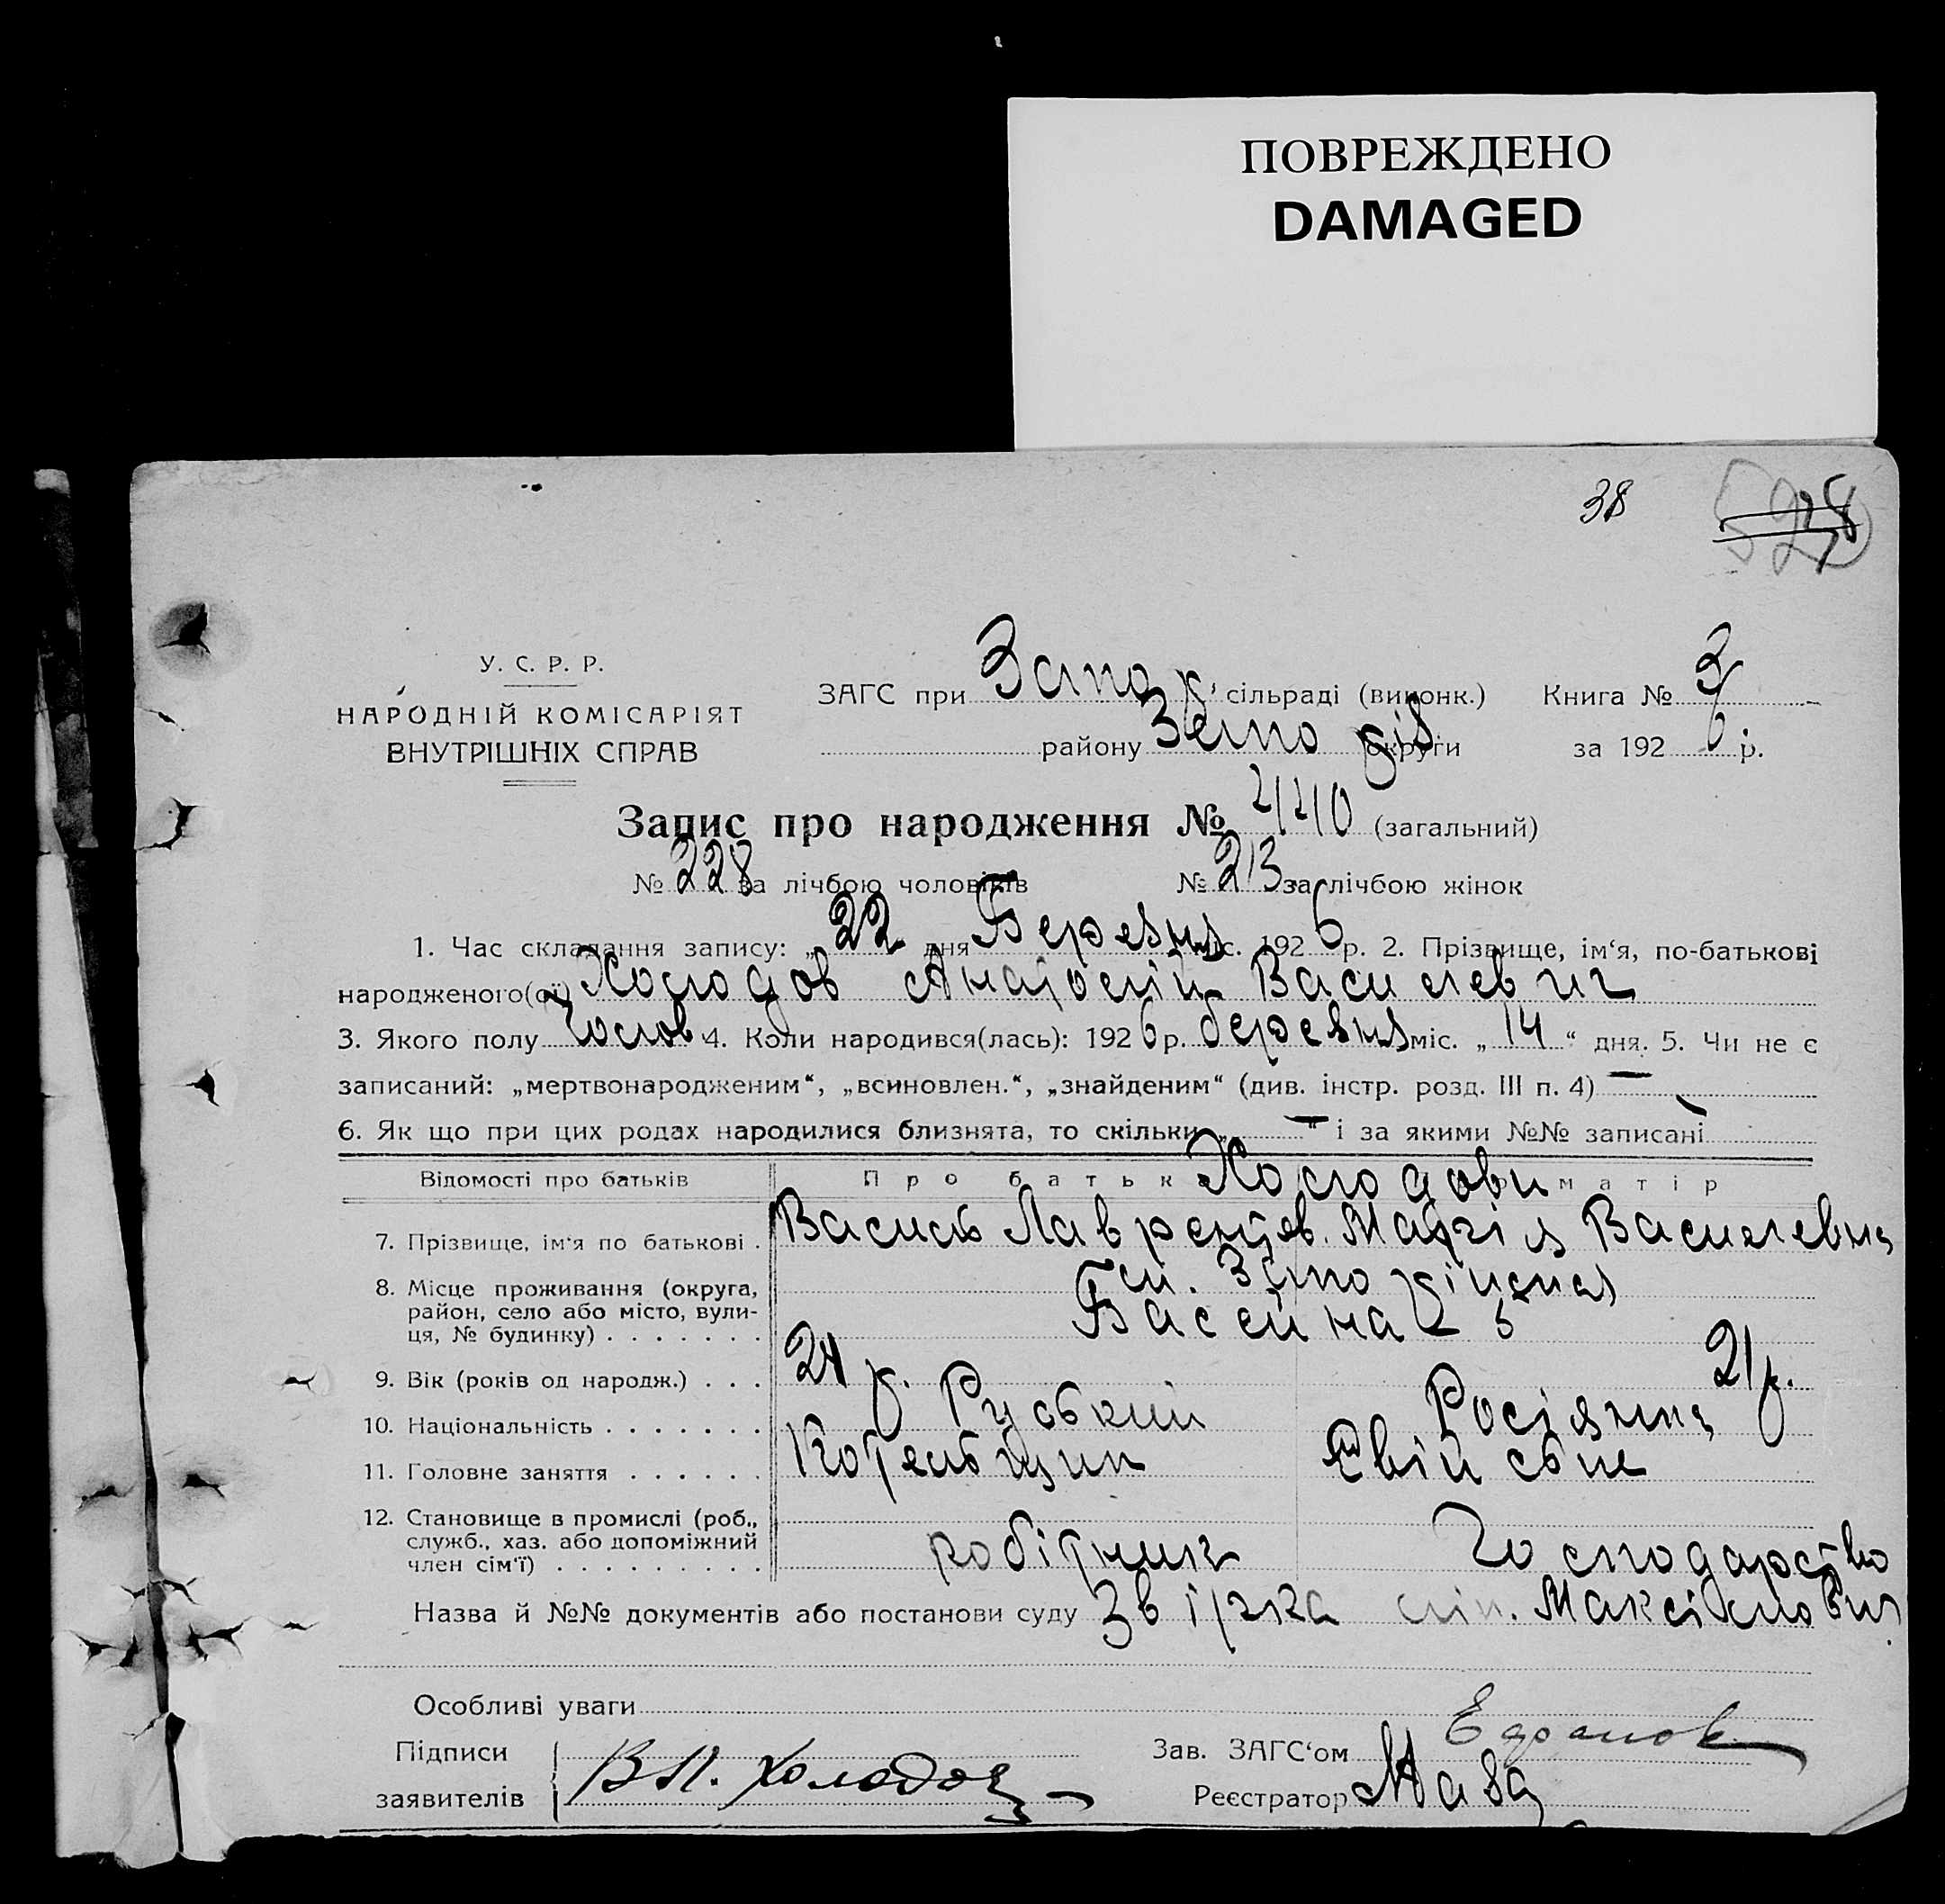 ПОВРЕЖДЕНО
DAMAGED
38
У. С. Р. Р.
НАРОДНІЙ КОМІСАРІЯТ
ВНУТРІШНІХ СПРАВ
ЗАГС при Запор. сільраді (виконк.) Книга № 3
району Запоріз округи за 1926 р.
Запис про народження № 440 (загальний)
№ 228 за лічбою чоловіків № 213 за лічбою жінок
1. Час складання запису: „22 дня Березня міс. 1926 р. 2. Прізвище, ім‘я, по-батькові
народженого(ої) Холодов Анатолій Василевич
3. Якого полу Чолов. 4. Коли народився(лась): 1926 р. березня міс. „14“ дня. 5. Чи не є
записаний: „мертвонародженим“, „всиновлен.“, „знайденим“ (див. інстр. розд. III п. 4) —
6. Як що при цих родах народилися близнята, то скільки „—“ і за якими №№ записані
Відомості про батьків Про батька Холодови матір
7. Прізвище, ім‘я по батькові . Василь Лаврентов. Марія Василевна
8. Місце проживання (округа, м. Запоріжжя
район, село або місто, вули-
ця, № будинку) . . . . . . . Басейна 5
9. Вік (років од народж.) . . . 24 р. 21 р.
10. Національність . . . . . . . Руський Росіянка
11. Головне заняття . . . . . . Котельщик Свійське
12. Становище в промислі (роб.,
служб., хаз. або допоміжний
член сім‘ї) . . . . . . . . . робітник господарство
Назва й №№ документів або постанови суду Звістка лік.
Особливі уваги
Підписи Зав. ЗАГС‘ом
заявителів В Л. Холодов Реєстратор